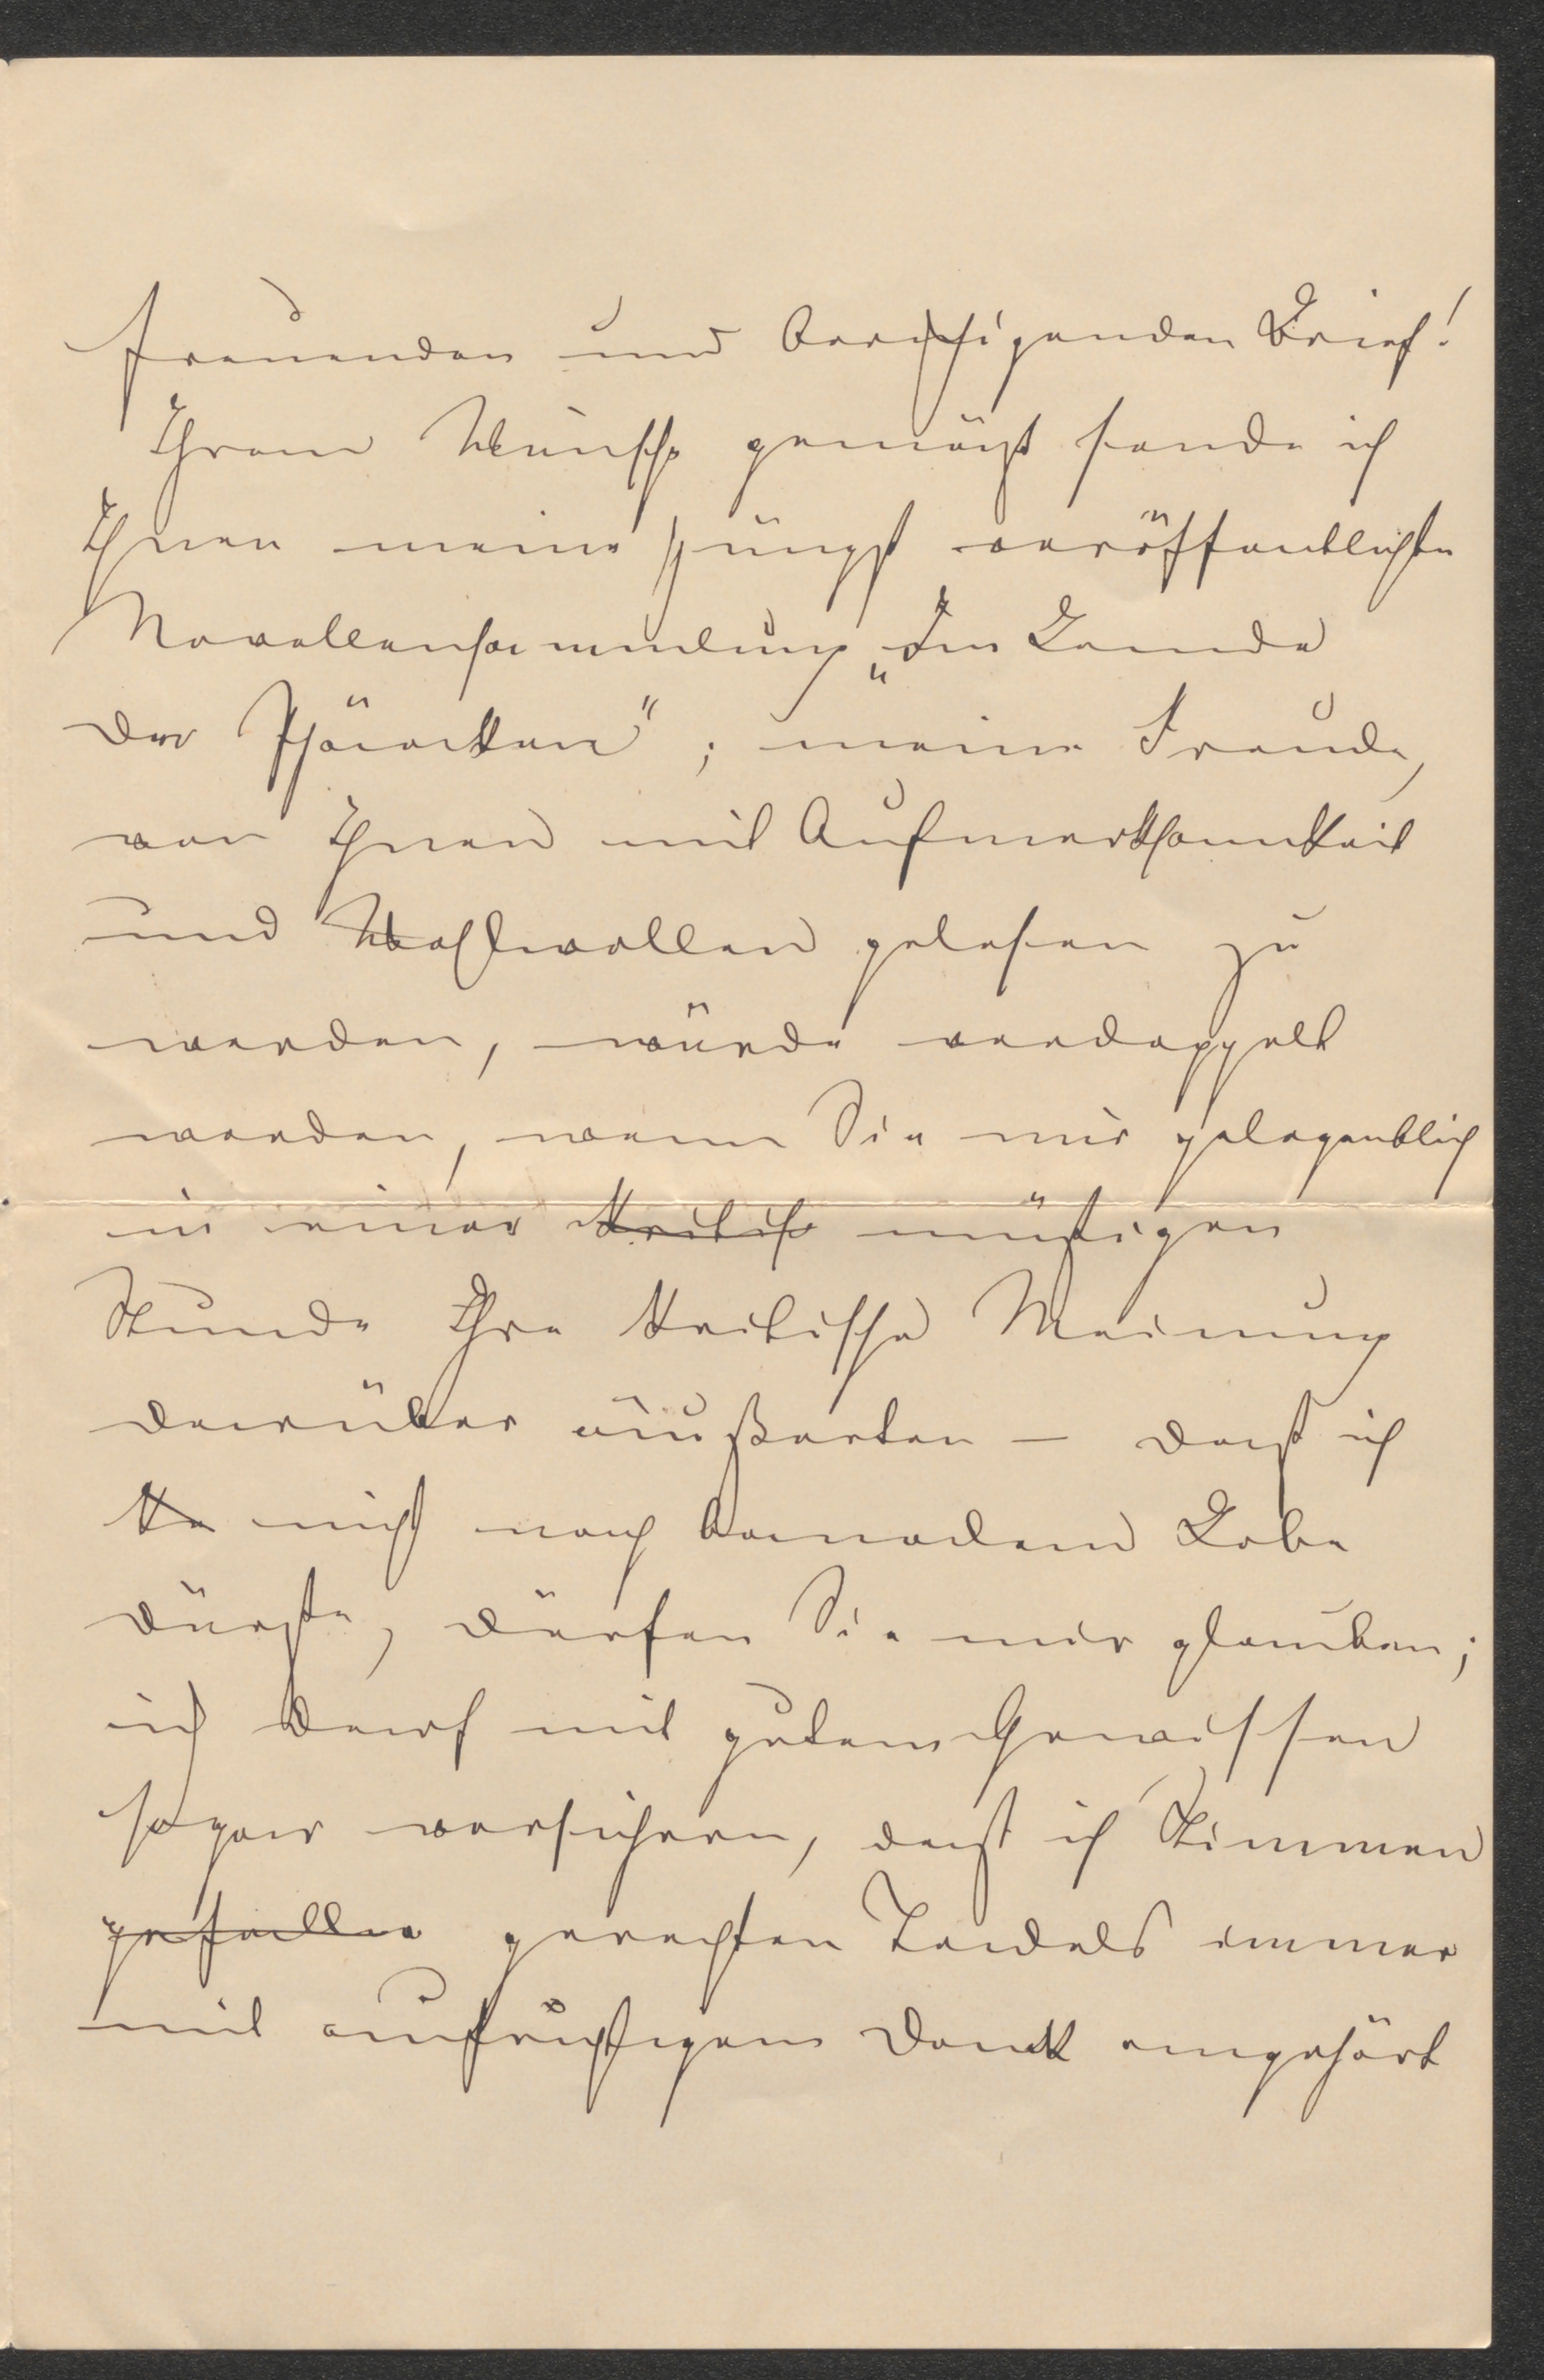 freuenden und beruhigenden Brief!
Ihrem Wunsche gemäß sende ich
Ihnen meine jüngst veröffentlichte
Novellensammlung „Im Lande
der Phäaken“; meine Freude,
von Ihnen mit Aufmerksamkeit
und Wohlwollen gelesen zu
werden, würde verdoppelt
werden, wenn Sie mir gelegentlich
in einer kritisch müßigen
Stunde Ihre kritische Meinung
darüber äußerten – daß ich
ke nicht nach banalem Lobe
dürste, dürfen Sie mir glauben;
ich darf mit gutem Gewissen
sogar versichern, daß ich Stimmen
gefallen gerechten Tadels immer
mit aufrichtigem Dank angehört